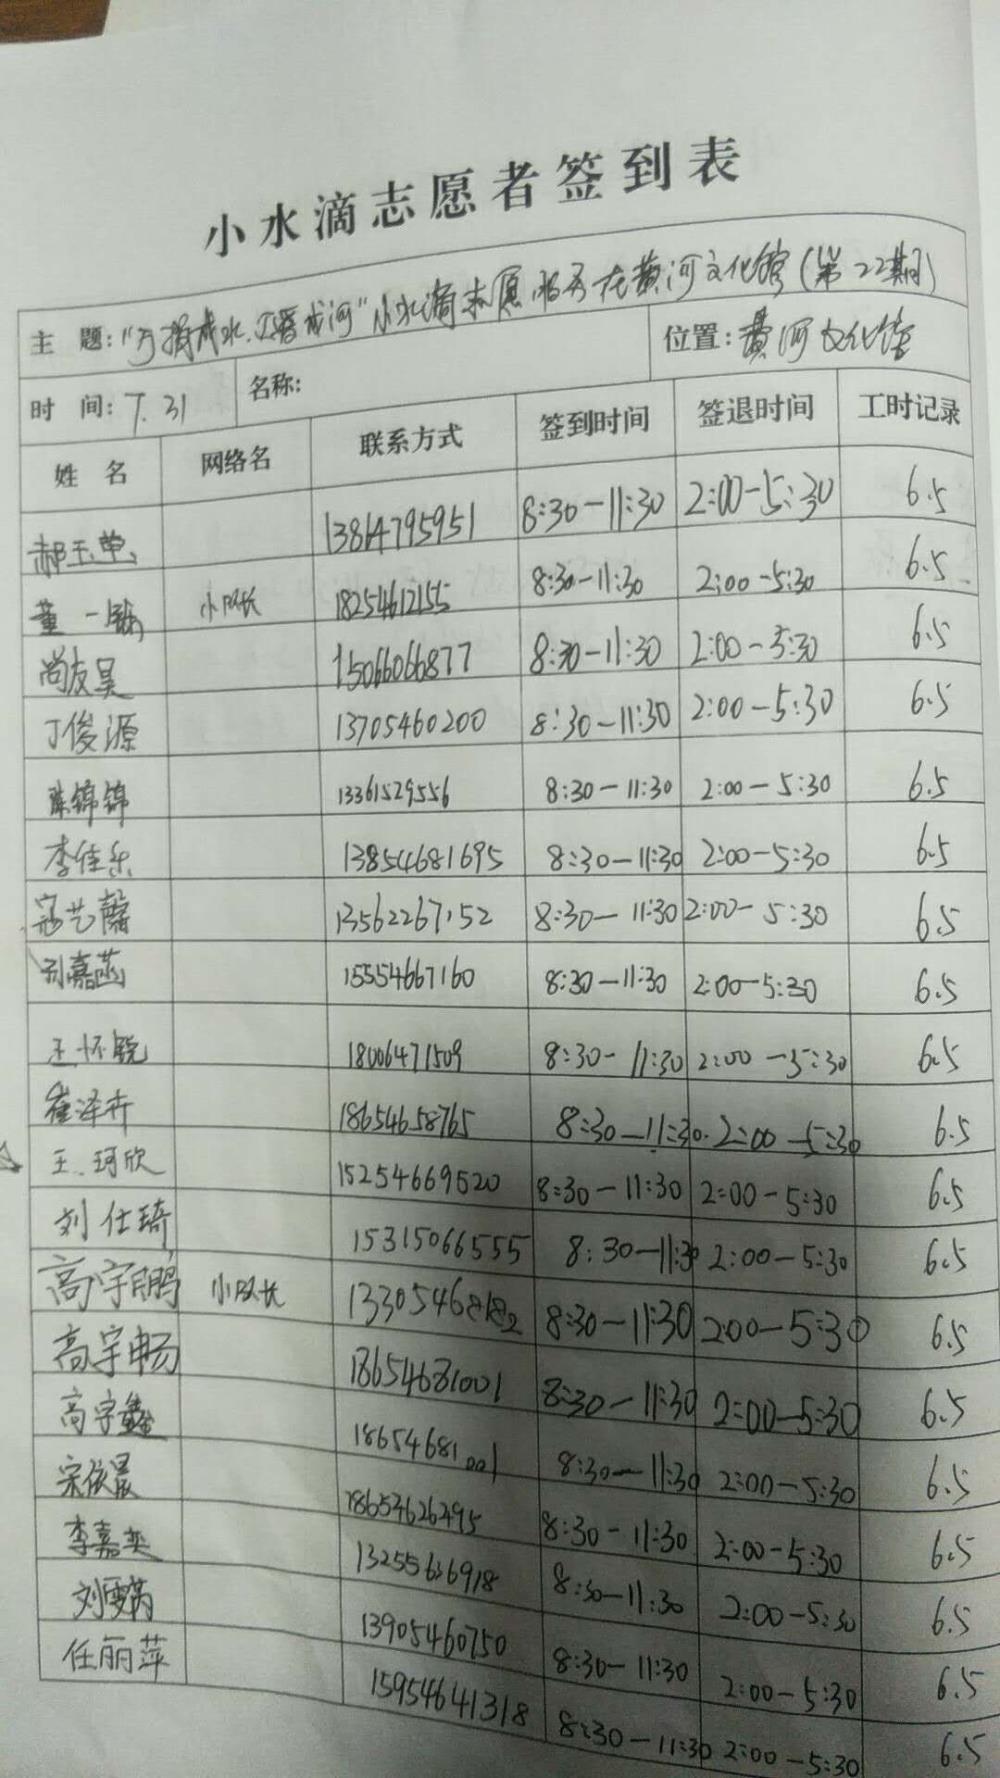 小水滴志愿者签到表
主 题：“万涓成水，汇善成河”小水滴志愿服务在黄河文化馆（第22期） 位置：黄河文化馆
时 间：7.31 名称：
姓 名 网络名 联系方式 签到时间 签退时间 工时记录
郝玉单 13814795951 8:30—11:30 2:00—5:30 6.5
董一 小队长 18254612155 8:30—11:30 2:00—5:30 6.5
尚友昊 15066066877 8:30—11:30 2:00—5:30 6.5
丁俊源 13705460200 8:30—11:30 2:00—5:30 6.5
陈锦锦 13361529556 8:30—11:30 2:00—5:30 6.5
李佳乐 13854681695 8:30—11:30 2:00—5:30 6.5
寇艺馨 13562267152 8:30—11:30 2:00—5:30 6.5
别嘉菡 15554667160 8:30—11:30 2:00—5:30 6.5
王怀锐 18006471509 8:30—11:30 2:00—5:30 6.5
崔泽卉 18654658765 8:30—11:30 2:00—5:30 6.5
王珂欣 15254669520 8:30—11:30 2:00—5:30 6.5
刘仕琦 15315066555 8:30—11:30 2:00—5:30 6.5
高宇鹏 小队长 13305468182 8:30—11:30 2:00—5:30 6.5
高宇畅 18654681001 8:30—11:30 2:00—5:30 6.5
高宇鑫 18654681001 8:30—11:30 2:00—5:30 6.5
宋依晨 18653626495 8:30—11:30 2:00—5:30 6.5
李嘉奕 13255636918 8:30—11:30 2:00—5:30 6.5
刘雯芮 13905460750 8:30—11:30 2:00—5:30 6.5
任丽萍 15954641318 8:30—11:30 2:00—5:30 6.5